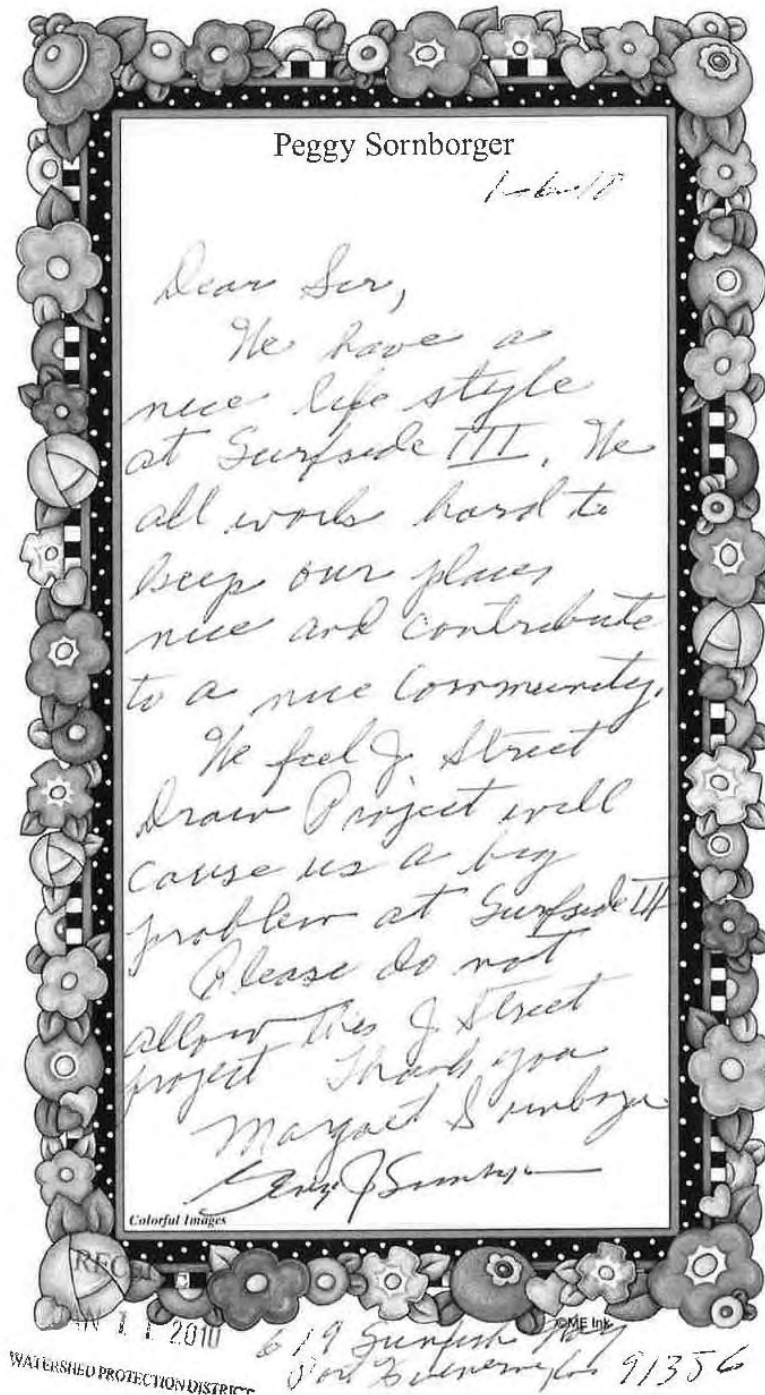 Peggy Sornborger
1-6-10
Dear Sir,
We have a
nice life style
at Surfside III. We
all work hard to
keep our places
nice and contribute
to a nice community.
We feel J. Street
Drain Project will
cause us a big
problem at Surfside III
Please do not
allow this J Street
project Thank you
Margaret Sornborger
Colorful Images
©ME Ink
JAN 11 2010
619 Sunfish Way
WATERSHED PROTECTION DISTRICT
91356